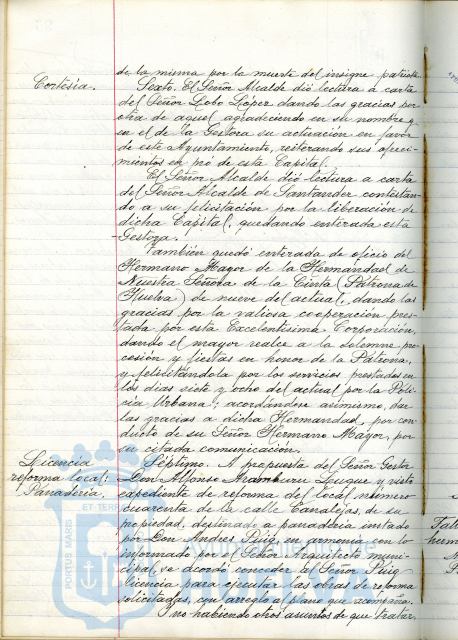 de la misma por la muerte del insigne patriota.
Cortesía.
Sexto. El Señor Alcalde dió lectura a carta
del Señor Lobo López dando las gracias por
otra de aquel agradeciendo en su nombre y
en el de la Gestora su actuación en favor
de este Ayuntamiento, reiterando sus ofreci-
mientos en pró de esta Capital.
El Señor Alcalde dió lectura a carta
del Señor Alcalde de Santander contestan-
do a su felicitación por la liberación de
dicha Capital, quedando enterada esta
Gestora.
También quedó enterada de oficio del
Hermano Mayor de la Hermandad de
Nuestra Señora de la Cinta (Patrona de
Huelva) de nueve del actual, dando las
gracias por la valiosa cooperación pres-
tada por esta Excelentísima Corporación,
dando el mayor realce a la solemne pro-
cesión y fiestas en honor de la Patrona,
y felicitándola por los servicios prestados en
los días siete y ocho del actual por la Poli-
cía Urbana; acordándose asimismo, dar
las gracias a dicha Hermandad, por con-
ducto de su Señor Hermano Mayor, por
su citada comunicación.
Licencia
reforma local:
Panadería.
Séptimo. A propuesta del Señor Gestor
Don Alfonso Aramburu Luque y visto
expediente de reforma del local número
cuarenta de la calle Canalejas, de su
propiedad, destinado a panadería instado
por Don Andres Puig, en armonía con lo
informado por el Señor Arquitecto muni-
cipal, se acordó conceder al Señor Puig
licencia para ejecutar las obras de reforma
solicitadas, con arreglo al plano que acompaña.
Y no habiendo otros asuntos de que tratar,
PORTUS MARIS
ET TERR